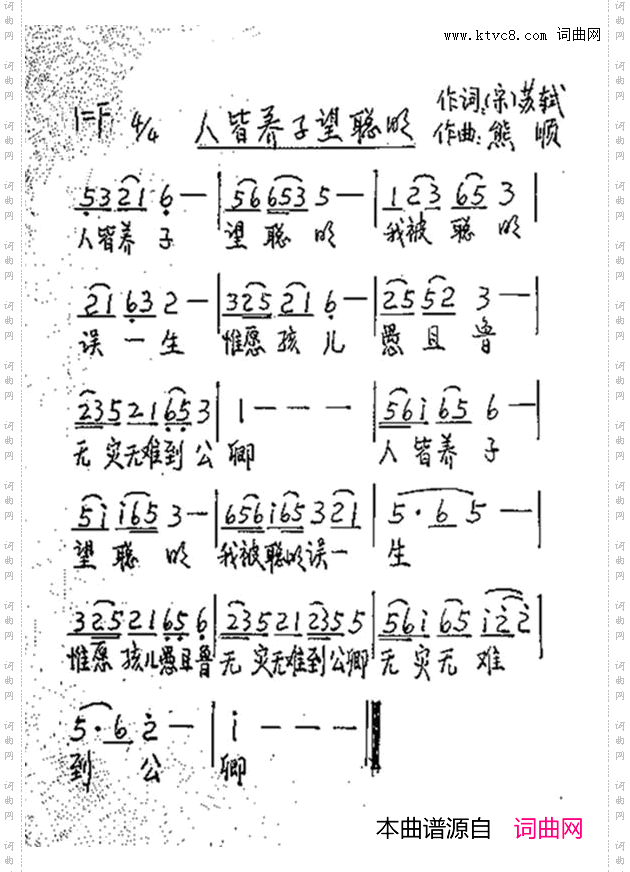 www.ktvc8.com 词曲网
1=F 4/4 人皆养子望聪明 作词:(宋)苏轼
作曲:熊顺
5321 6 — | 56 653 5 — | 123 65 3 |
人皆养子 望聪明 我被聪明
21 63 2 — | 325 21 6 — | 25 52 3 — |
误一生 惟愿孩儿 愚且鲁
235 21 65 3 | 1 — — — | 561 65 6 — |
无灾无难到公卿 人皆养子
51 165 3 — | 656165 3 21 | 5·6 5 — |
望聪明 我被聪明误一 生
325 21 65 6 | 235 21 235 5 | 561 65 122 |
惟愿孩儿愚且鲁 无灾无难到公卿 无灾无难
5·6 2 — | 1 — — — ‖
到公 卿
本曲谱源自 词曲网